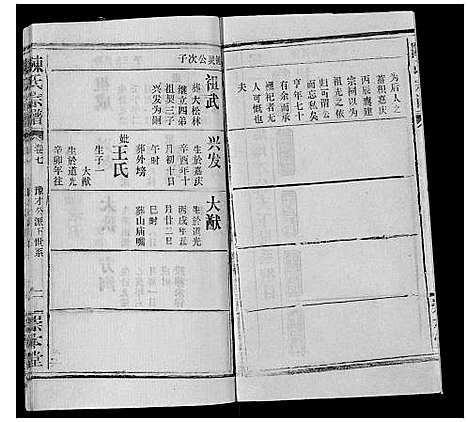 为后人之
蓄积嘉庆
丙辰农建
宗祠以妥
祖先之依
归可谓公
而忘私矣
亨年七十
有余而承
禋祀者无
人可慨也
夫
公次子
祖武
葬大松林
继立四弟
祖契三子
兴发为嗣
兴发
生於嘉庆
辛酉年十
月初十日
午时
葬外塝
妣王氏
生子一
大猷
生於道光
辛卯年往
大猷
生於道光
丙戌年五
月廿二日
巳时
葬山庙嘴
陳氏宗譜
卷七
豫才公派下世系
一